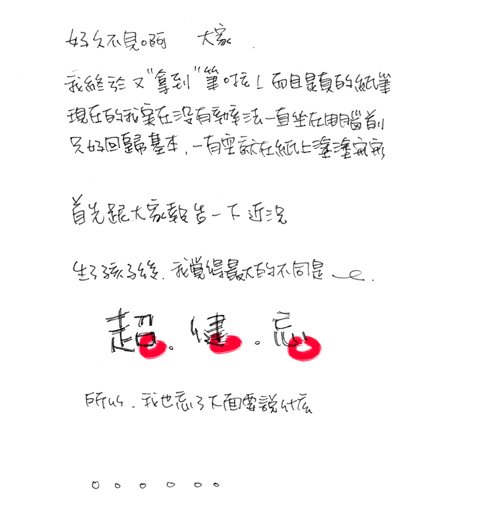 好久不見啊 大家.
我終於又"拿到"筆啦！而且是真的紙筆
現在的我實在沒有辦法一直坐在電腦前
只好回歸基本，一有空就在紙上塗塗寫寫
首先跟大家報告一下近況
生了孩子後，我覺得最大的不同是～.
超.健.忘
所以，我也忘了下面要說什麼
。。。。。。